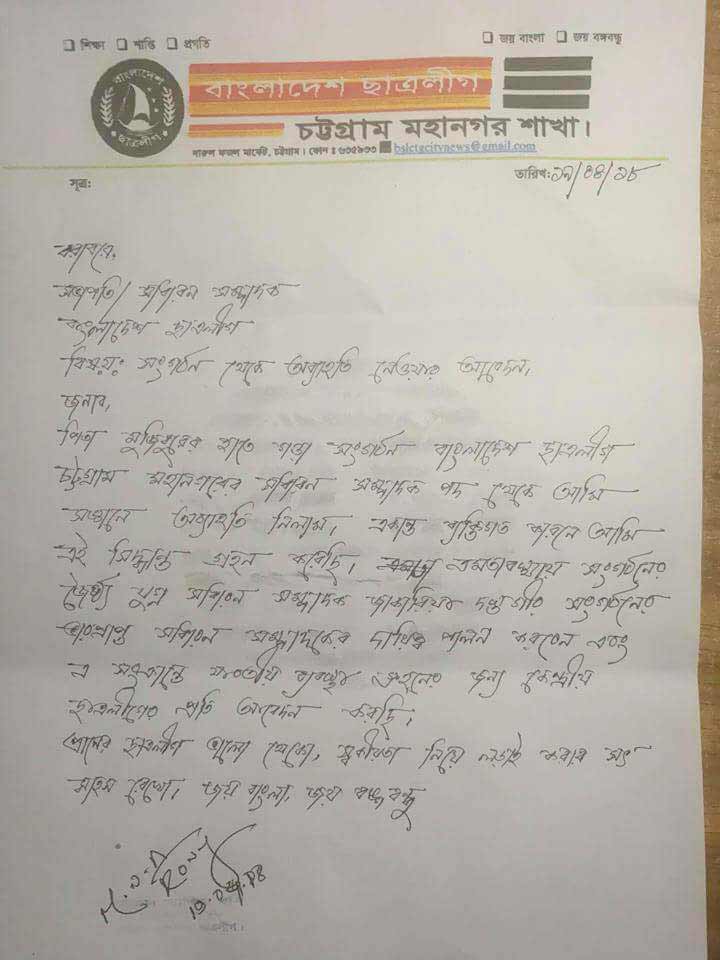 ❑ শিক্ষা ❑ শান্তি ❑ প্রগতি ❑ জয় বাংলা ❑ জয় বঙ্গবন্ধু
বাংলাদেশ ছাত্রলীগ
বাংলাদেশ ছাত্রলীগ
চট্টগ্রাম মহানগর শাখা।
দারুল ফজল মার্কেট, চট্টগ্রাম। ফোন : ৬৩৫৯৩৩ bslctgcitynews@email.com
সূত্র: তারিখ: ১৯/০৪/১৮
বরাবরে,
সভাপতি/ সাধারন সম্মাদক
বাংলাদেশ ছাত্রলীগ
বিষয়ঃ সংগঠন থেকে অব্যাহতি নেওয়ার আবেদন।
জনাব,
পিতা মুজিবুরের হাতে গড়া সংগঠন বাংলাদেশ ছাত্রলীগ
চট্টগ্রাম মহানগরের সাধারন সম্মাদক পদ থেকে আমি
সজ্ঞানে অব্যাহতি নিলাম। একান্ত ব্যক্তিগত কারনে আমি
এই সিদ্ধান্ত গ্রহন করেছি। এমতাবস্থায় সংগঠনের
জৈষ্ঠ্য যুগ্ন সাধারন সম্মাদক জাকারিয়া দস্তগীর সংগঠনের
ভারপ্রাপ্ত সাধারন সম্মাদকের দায়িত্ব পালন করবেন এবং
এ সংক্রান্তে যাবতীয় ব্যবস্থা গ্রহনের জন্য কেন্দ্রীয়
ছাত্রলীগের প্রতি আবেদন করছি।
প্রানের ছাত্রলীগ ভালো থেকো, স্বকীয়তা নিয়ে লড়াই করার সৎ
সাহস রেখো। জয় বাংলা, জয় বঙ্গবন্ধু
19.04.18